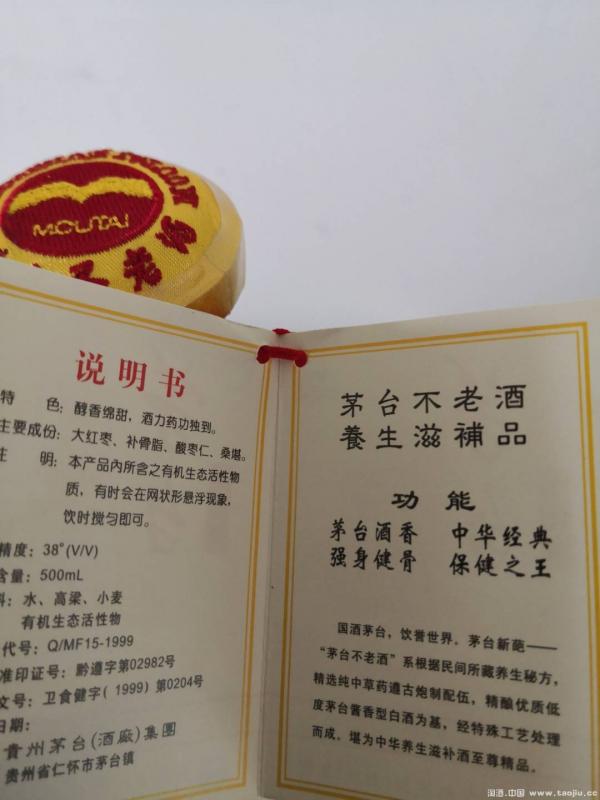 MOUTAI
说明书
特 色：醇香绵甜，酒力药功独到。
主要成份：大红枣、补骨脂、酸枣仁、桑堪。
注 明：本产品内所含之有机生态活性物
质，有时会在网状形悬浮现象，
饮时搅匀即可。
精度：38°(V/V)
含量：500mL
料：水、高梁、小麦
有机生态活性物
代号：Q/MF15-1999
准印证号：黔遵字第02982号
文号：卫食健字(1999)第0204号
日期：
貴州茅台(酒廠)集團
贵州省仁怀市茅台镇
茅台不老酒
養生滋補品
功 能
茅台酒香 中华经典
强身健骨 保健之王
国酒茅台，饮誉世界。茅台新葩——
“茅台不老酒”系根据民间所藏养生秘方，
精选纯中草药遵古炮制配伍，精酿优质低
度茅台酱香型白酒为基，经特殊工艺处理
而成。堪为中华养生滋补酒至尊精品。
淘酒.中国 www.taojiu.cc